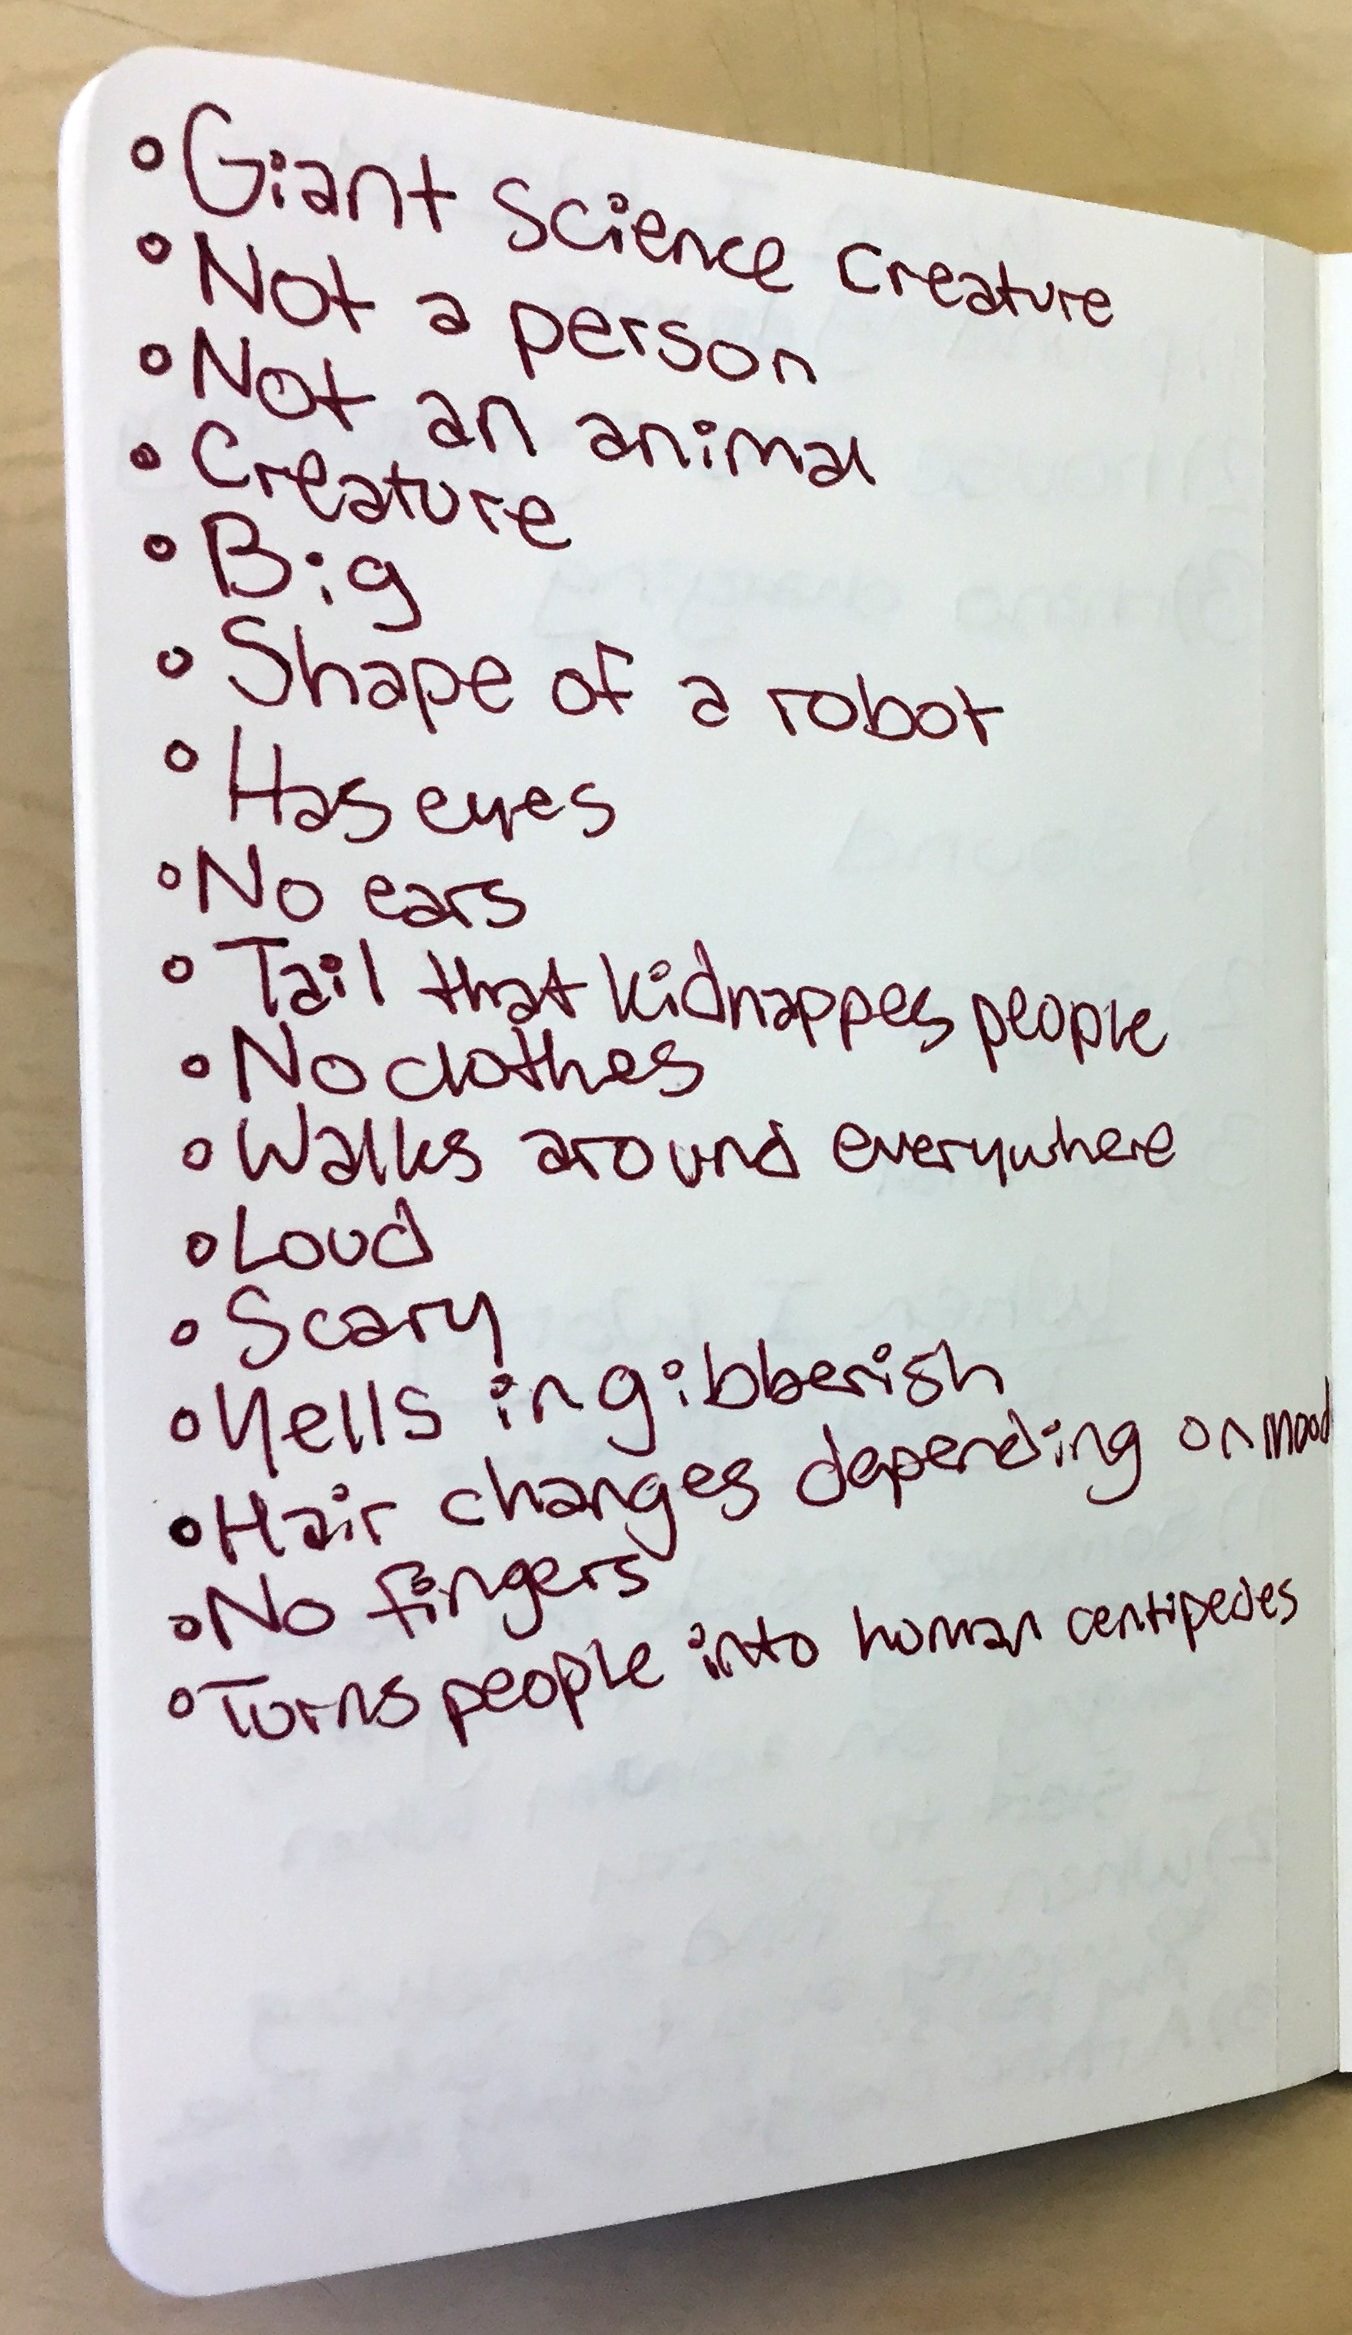 • Giant science creature
• Not a person
• Not an animal
• Creature
• Big
• Shape of a robot
• Has eyes
• No ears
• Tail that kidnappes people
• No clothes
• Walks around everywhere
• Loud
• Scary
• Yells in gibberish
• Hair changes depending on mood
• No fingers
• Turns people into human centipedes